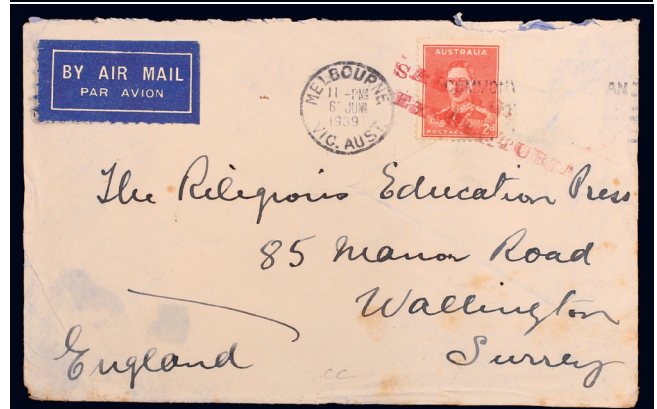 BY AIR MAIL
PAR AVION
MELBOURNE
11 - PM
6 JUN
1939
VIC. AUST
AUSTRALIA
COMMON
AN
POSTAGE 2D
The Religious Education Press
85 Manor Road
Wallington
Surrey
England